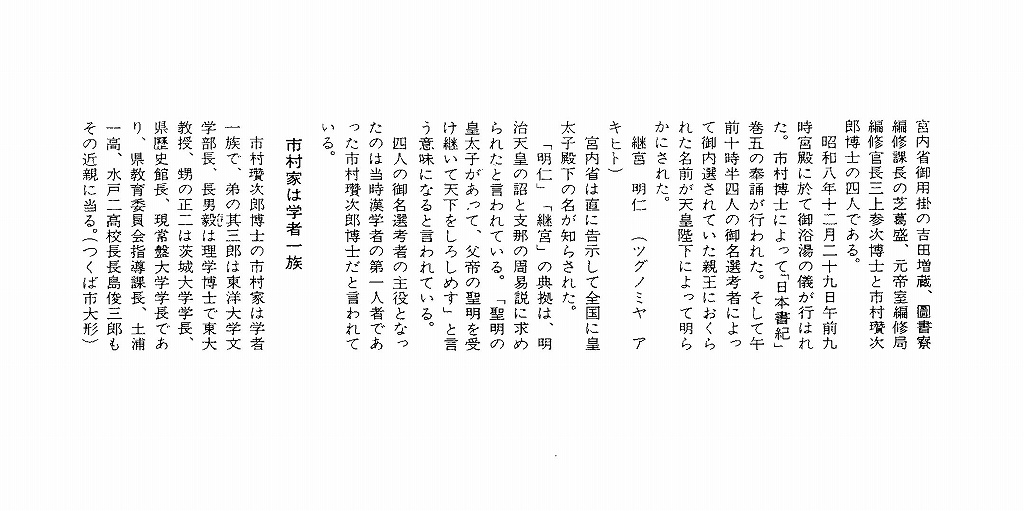 宮内省御用掛の吉田増蔵、圖書寮
編修課長の芝葛盛、元帝室編修局
編修官長三上参次博士と市村瓚次
郎博士の四人である。
昭和八年十二月二十九日午前九
時宮殿に於て御浴湯の儀が行はれ
た。市村博士によって「日本書紀」
巻五の奉誦が行われた。そして午
前十時半四人の御名選考者によっ
て御内選されていた親王におくら
れた名前が天皇陛下によって明ら
かにされた。
継宮 明仁 (ツグノミヤ ア
キヒト)
宮内省は直に告示して全国に皇
太子殿下の名が知らされた。
「明仁」「継宮」の典拠は、明
治天皇の詔と支那の周易説に求め
られたと言われている。「聖明の
皇太子があって、父帝の聖明を受
け継いて天下をしろしめす」と言
う意味になると言われている。
四人の御名選考者の主役となっ
たのは当時漢学者の第一人者であ
った市村瓚次郎博士だと言われて
いる。
市村家は学者一族
市村瓚次郎博士の市村家は学者
一族で、弟の其三郎は東洋大学文
学部長、長男毅は理学博士で東大
教授、甥の正二は茨城大学学長、
県歴史館長、現常盤大学学長であ
り、県教育委員会指導課長、土浦
一高、水戸二高校長長島俊三郎も
その近親に当る。(つくば市大形)